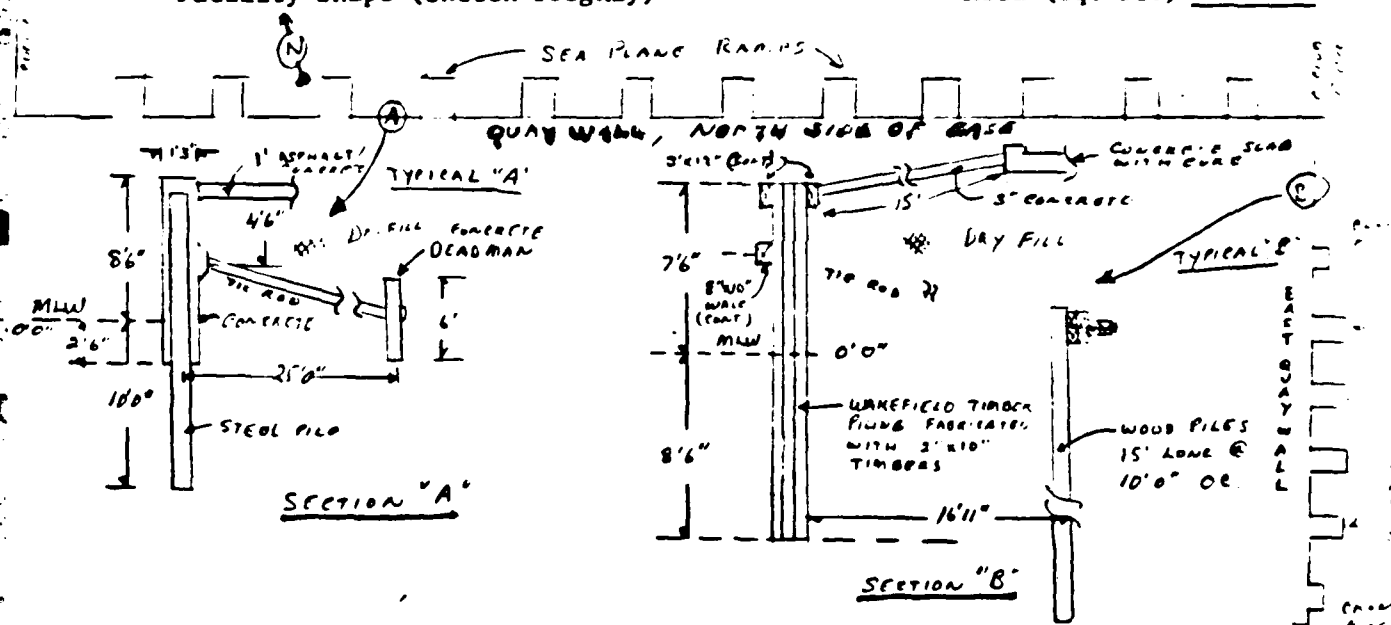 N
SEA PLANE RAMPS
A
QUAY WALL, NORTH SIDE OF BASE
1'3"
TYPICAL "A"
4'6"
8'6"
CONCRETE
DEADMAN
TIE ROD
6'
MLW
0'0"
2'6"
CONCRETE
25'0"
10'0"
STEEL PILE
SECTION "A"
CONCRETE SLAB
WITH CURB
15'
3" CONCRETE
DRY FILL
TYPICAL "B"
7'6"
TIE ROD
8"x10"
WALE
(CONT)
MLW
0'0"
EAST QUAYWALL
WAKEFIELD TIMBER
PILING FABRICATED
WITH 3"x10"
TIMBERS
8'6"
WOOD PILES
15' LONG @
10'0" OC.
16'11"
SECTION "B"